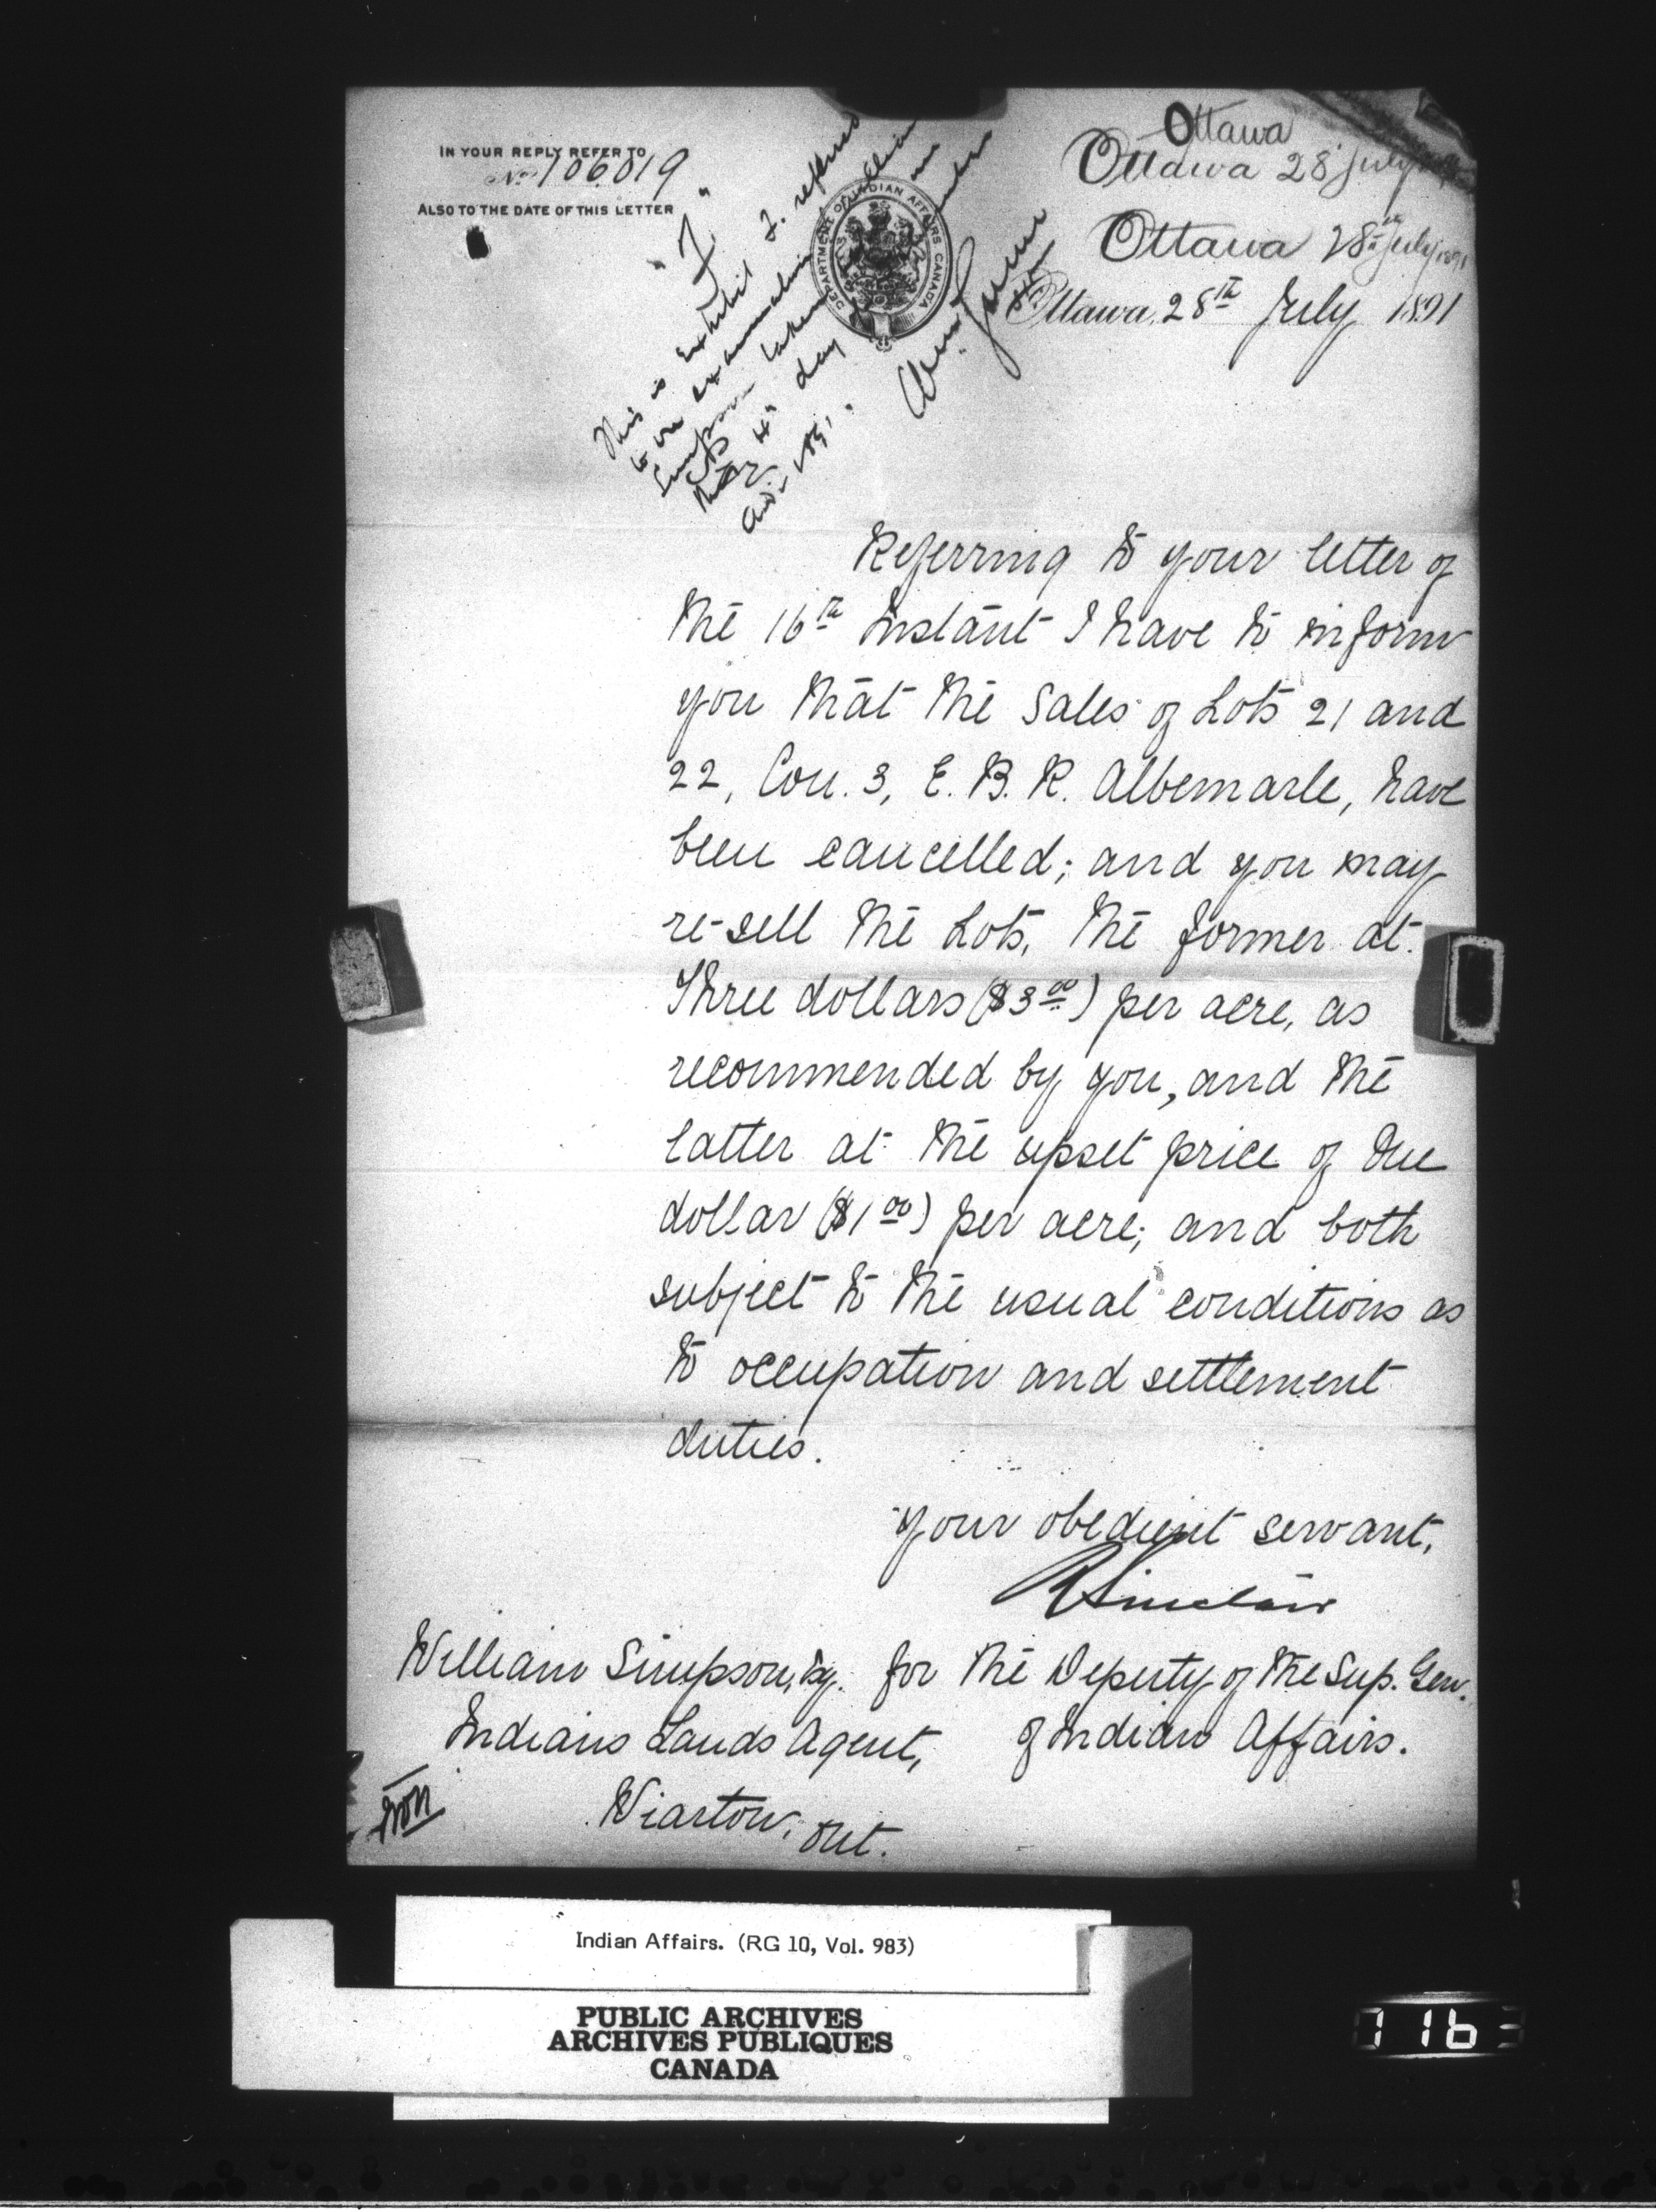 IN YOUR REPLY REFER TO
No. 106019
ALSO TO THE DATE OF THIS LETTER
DEPARTMENT OF INDIAN AFFAIRS CANADA
Ottawa
Ottawa 28 July
Ottawa 28th July 1891
Ottawa, 28th July 1891
"F"
This is Exhibit F. referred
to on examination William
Simpson taken
day
1891.
Referring to your letter of
the 16th Instant I have to inform
you that the Sales of Lots 21 and
22, Con. 3, E. B. R. Albemarle, have
been cancelled; and you may
re-sell the Lots, the former at
Three dollars ($3.00) per acre, as
recommended by you, and the
latter at the upset price of One
dollar ($1.00) per acre; and both
subject to the usual conditions as
to occupation and settlement
duties.
Your obedient servant,
Sinclair
William Simpson, Esq. for the Deputy of the Sup. Gen.
Indians Lands Agent, of Indian Affairs.
Wiarton, Ont.
Indian Affairs. (RG 10, Vol. 983)
PUBLIC ARCHIVES
ARCHIVES PUBLIQUES
CANADA